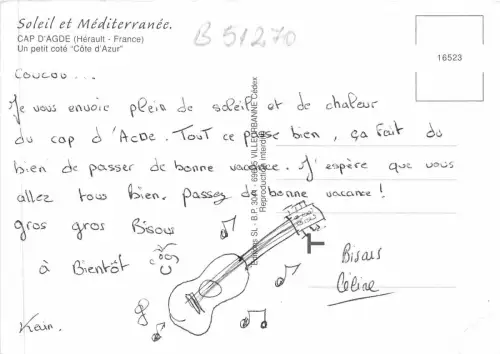 Soleil et Méditerranée.
CAP D'AGDE (Hérault - France)
Un petit coté "Côte d'Azur"
B 51270
16523
Coucou...
Je vous envoie plein de soleil et de chaleur
du cap d'Agde. Tout ce passe bien, ça fait du
bien de passer de bonne vacance. J'espère que vous
allez tous bien. Passez de bonne vacance!
gros gros Bisous
à Bientôt
Bisous
Céline
Kévin.
Editions SL - B.P. 3041 - 69605 VILLEURBANNE Cédex
Reproduction interdite